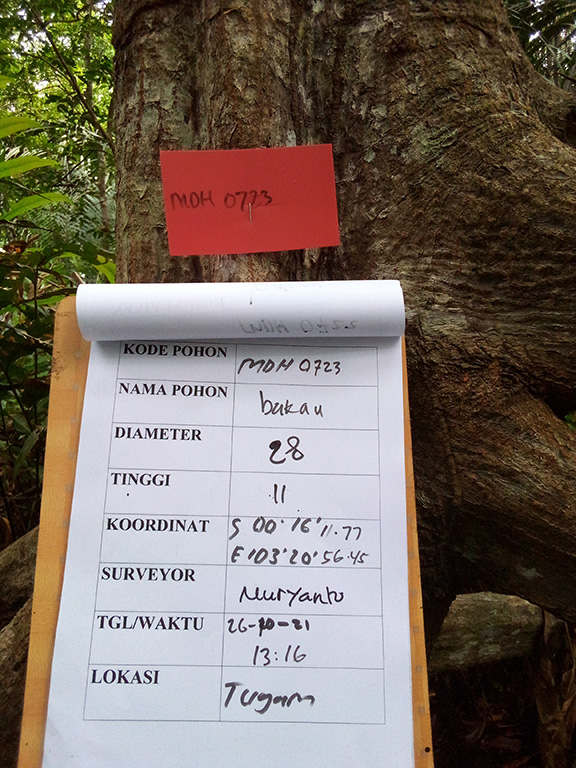 MDH 0723
KODE POHON MDH 0723
NAMA POHON bakau
DIAMETER 28
TINGGI 11
KOORDINAT S 00°16'11.77
E 103°20'56.45
SURVEYOR Muryanto
TGL/WAKTU 26-10-21
13:16
LOKASI